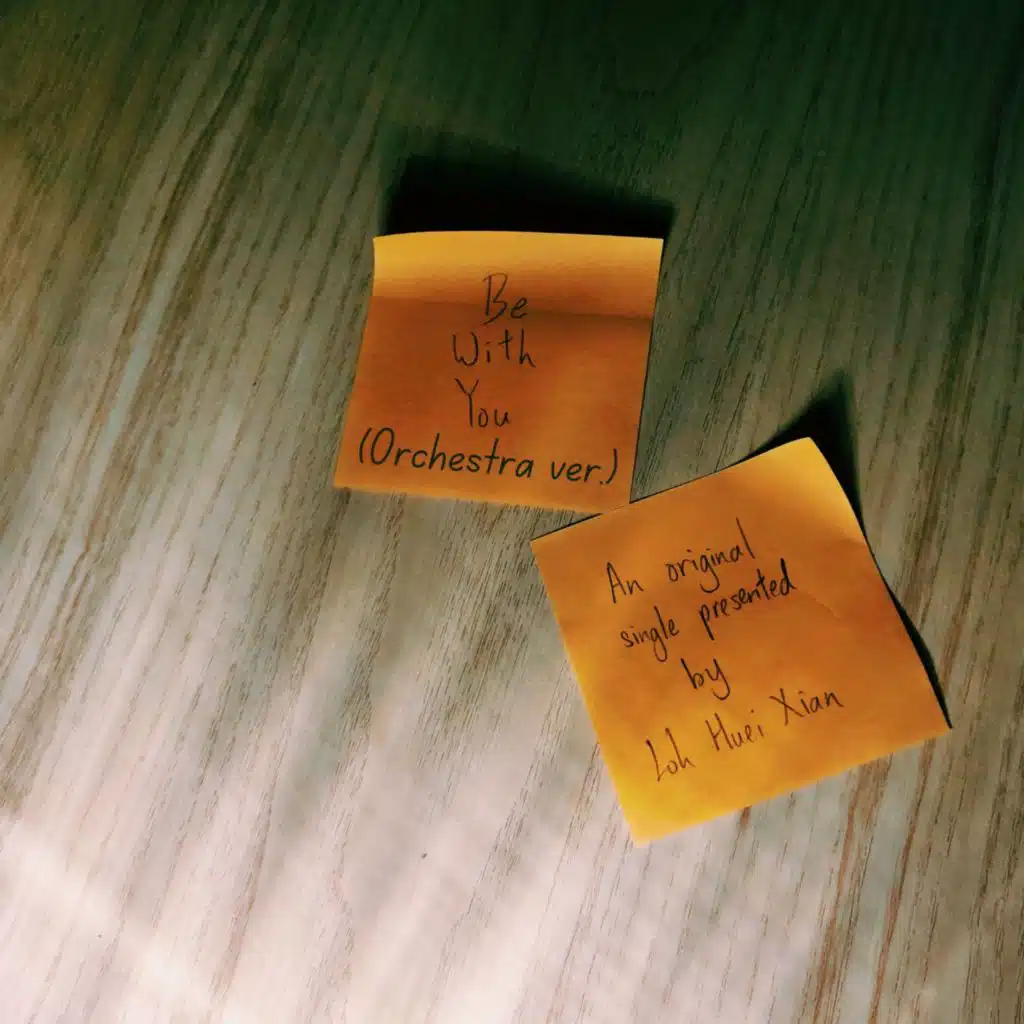 Be
With
You
(Orchestra ver.)
An original
single presented
by
Loh Huei Xian